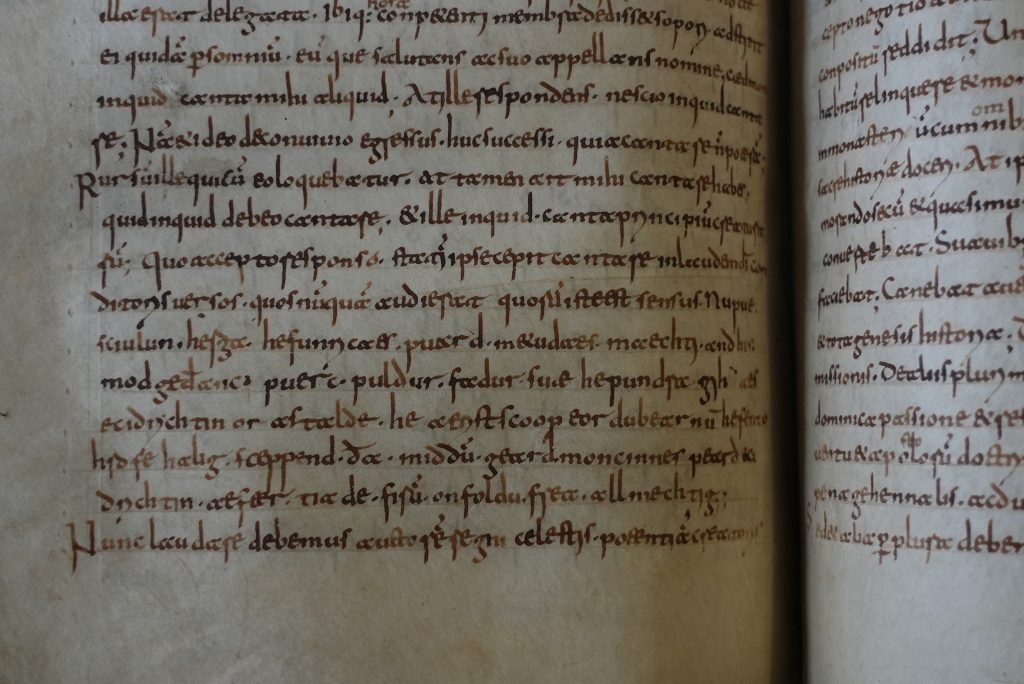 illa erat delegata. Ibiq: conpetenti membra dedisset sopori. adstitit
ei quidā ꝑsomniū. eūque salutans ac suo appellans nomine, caedmon
inquid canta mihi aliquid. At ille respondens. nescio inquid canta
re; Nā et ideo de conuiuio egressus. huc successi. quia cantare n̄ poterā.
Rursū ille qui cū eo loquebatur. attamen ait mihi cantare habes.
quid inquid debeo cantare; & ille inquid. canta principiū creatura
rū; Quo accepto responso. statī ipse cepit cantare in laudem dī con
ditoris versos. quos nūquā audierat quorū iste est sensus Nu pue
sciulun. herga hefunricaes. puard. metudaes. maechti. and his
modgedanc. puerc. puldur. fadur. sue he pundra gih aes
eci drychtin or astalde. he aerist scoop eordu bearnū hefento
hrofe halig. sceppend. da. middū. geard moncinnes peard eci
drychtin. aefter. tiade. firū. on foldu. frea. allmechtig;
Nunc laudare debemus auctorē regni celestis. potentiā creatoris
cepto negotio a
conpositū reddidit; Un
habitū relinquere & mon
in monasteri ū cum omnib
sacre historiae doceri. At ip
morando secū & quasi mun
conuertebat. Suauib
faciebat; Canebat
& tota genesis historia.
missionis. De aliis plurim
dominica passione & re
uentu & apłoꝝ doctr
penae gehennalis. ac du
sed et alia ꝑplura de ben